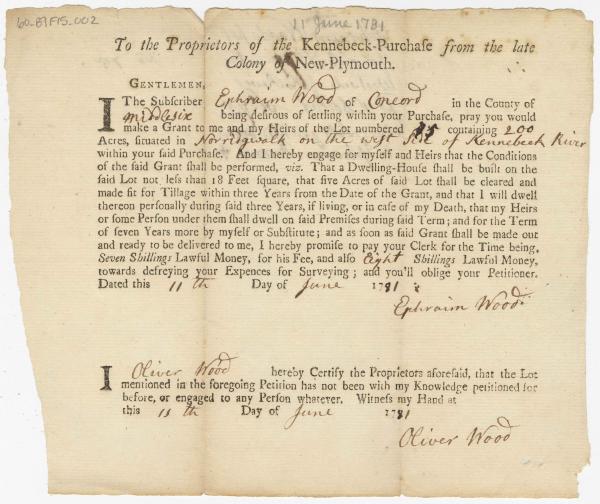 60-EFIS-002
11 June 1781
To the Proprietors of the Kennebeck-Purchase from the late
Colony of New-Plymouth.
GENTLEMEN,
I The Subscriber Ephraim Wood of Concord in the County of
Middlesix being desirous of settling within your Purchase, pray you would
make a Grant to me and my Heirs of the Lot numbered 35 containing 200
Acres, situated in Norridgwalk on the west side of Kennebeck River
within your said Purchase. And I hereby engage for myself and Heirs that the Conditions
of the said Grant shall be performed, viz. That a Dwelling-House shall be built on the
said Lot not less than 18 Feet square, that five Acres of said Lot shall be cleared and
made fit for Tillage within three Years from the Date of the Grant, and that I will dwell
thereon personally during said three Years, if living, or in case of my Death, that my Heirs
or some Person under them shall dwell on said Premises during said Term; and for the Term
of seven Years more by myself or Substitute; and as soon as said Grant shall be made out
and ready to be delivered to me, I hereby promise to pay your Clerk for the Time being,
Seven Shillings Lawful Money, for his Fee, and also Eight Shillings Lawful Money,
towards defreying your Expences for Surveying; and you'll oblige your Petitioner.
Dated this 11th Day of June 1781
Ephraim Wood
I Oliver Wood hereby Certify the Proprietors aforesaid, that the Lot
mentioned in the foregoing Petition has not been with my Knowledge petitioned for
before, or engaged to any Person whatever. Witness my Hand at
this 11th Day of June 1781
Oliver Wood